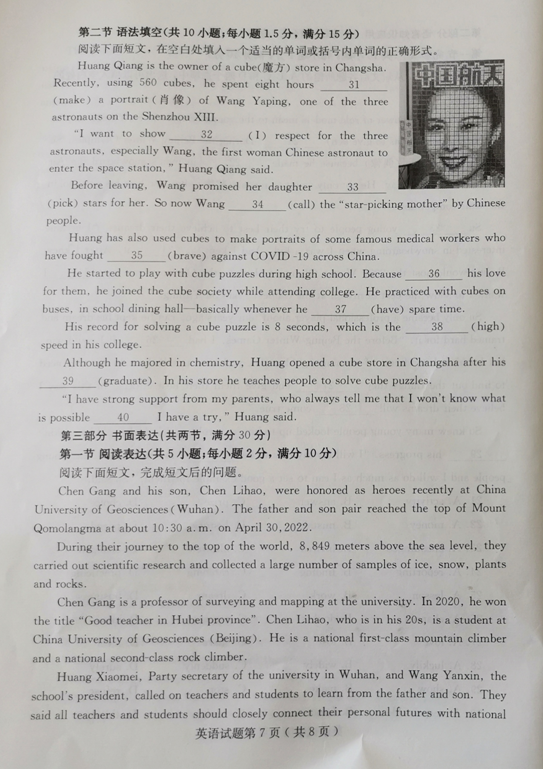 第二节 语法填空(共10小题;每小题1.5分,满分15分)
阅读下面短文,在空白处填入一个适当的单词或括号内单词的正确形式。
Huang Qiang is the owner of a cube(魔方) store in Changsha.
Recently, using 560 cubes, he spent eight hours 31
(make) a portrait(肖像) of Wang Yaping, one of the three
astronauts on the Shenzhou XIII.
中国航天
"I want to show 32 (I) respect for the three
astronauts, especially Wang, the first woman Chinese astronaut to
enter the space station," Huang Qiang said.
Before leaving, Wang promised her daughter 33
(pick) stars for her. So now Wang 34 (call) the "star-picking mother" by Chinese
people.
Huang has also used cubes to make portraits of some famous medical workers who
have fought 35 (brave) against COVID-19 across China.
He started to play with cube puzzles during high school. Because 36 his love
for them, he joined the cube society while attending college. He practiced with cubes on
buses, in school dining hall—basically whenever he 37 (have) spare time.
His record for solving a cube puzzle is 8 seconds, which is the 38 (high)
speed in his college.
Although he majored in chemistry, Huang opened a cube store in Changsha after his
39 (graduate). In his store he teaches people to solve cube puzzles.
"I have strong support from my parents, who always tell me that I won't know what
is possible 40 I have a try," Huang said.
第三部分 书面表达(共两节,满分30分)
第一节 阅读表达(共5小题;每小题2分,满分10分)
阅读下面短文,完成短文后的问题。
Chen Gang and his son, Chen Lihao, were honored as heroes recently at China
University of Geosciences(Wuhan). The father and son pair reached the top of Mount
Qomolangma at about 10:30 a.m. on April 30,2022.
During their journey to the top of the world, 8,849 meters above the sea level, they
carried out scientific research and collected a large number of samples of ice, snow, plants
and rocks.
Chen Gang is a professor of surveying and mapping at the university. In 2020, he won
the title "Good teacher in Hubei province". Chen Lihao, who is in his 20s, is a student at
China University of Geosciences (Beijing). He is a national first-class mountain climber
and a national second-class rock climber.
Huang Xiaomei, Party secretary of the university in Wuhan, and Wang Yanxin, the
school's president, called on teachers and students to learn from the father and son. They
said all teachers and students should closely connect their personal futures with national
英语试题第7页(共8页)